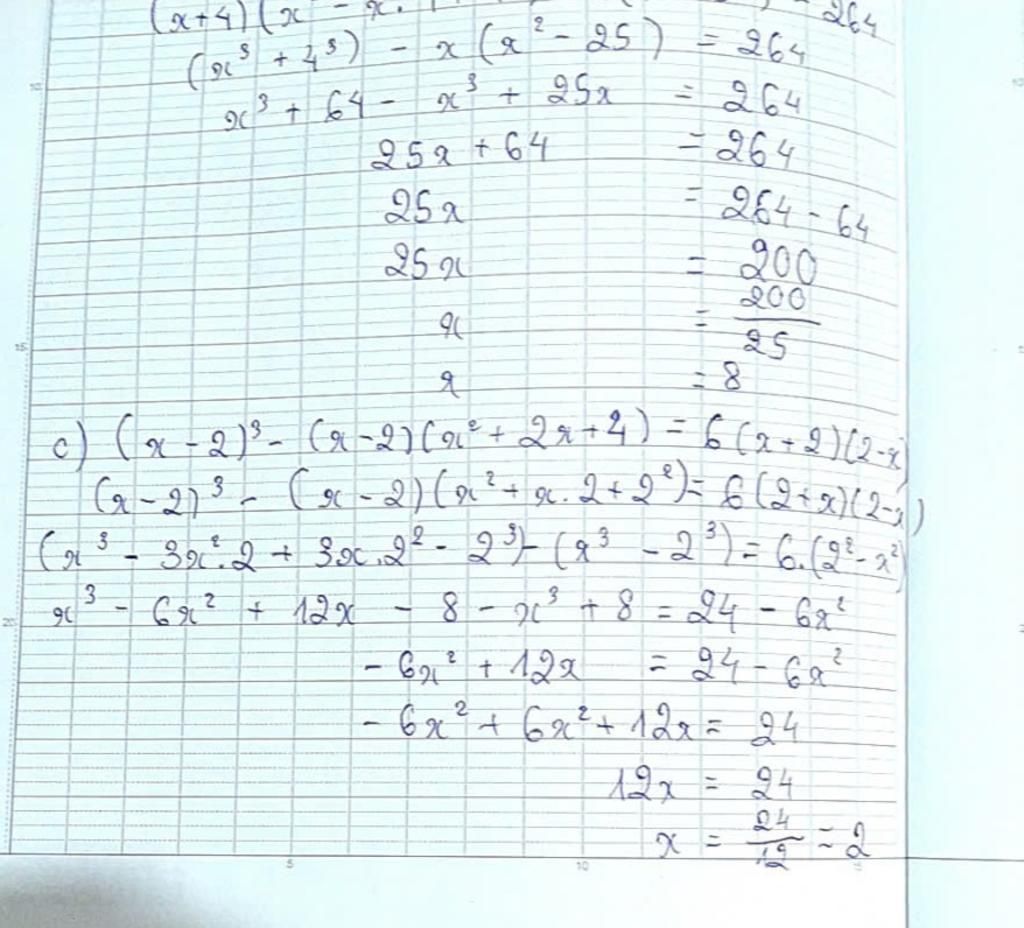 (x+4)(x² - x. 264
(x³ + 4³) - x(x² - 25) = 264
x³ + 64 - x³ + 25x = 264
25x + 64 = 264
25x = 264 - 64
25x = 200
x = 200/25
x = 8
c) (x - 2)³ - (x - 2)(x² + 2x + 4) = 6(x + 2)(2 - x)
(x - 2)³ - (x - 2)(x² + x.2 + 2²) = 6(2 + x)(2 - x)
(x³ - 3x².2 + 3x.2² - 2³) - (x³ - 2³) = 6.(2² - x²)
x³ - 6x² + 12x - 8 - x³ + 8 = 24 - 6x²
-6x² + 12x = 24 - 6x²
-6x² + 6x² + 12x = 24
12x = 24
x = 24/12 = 2
5 10